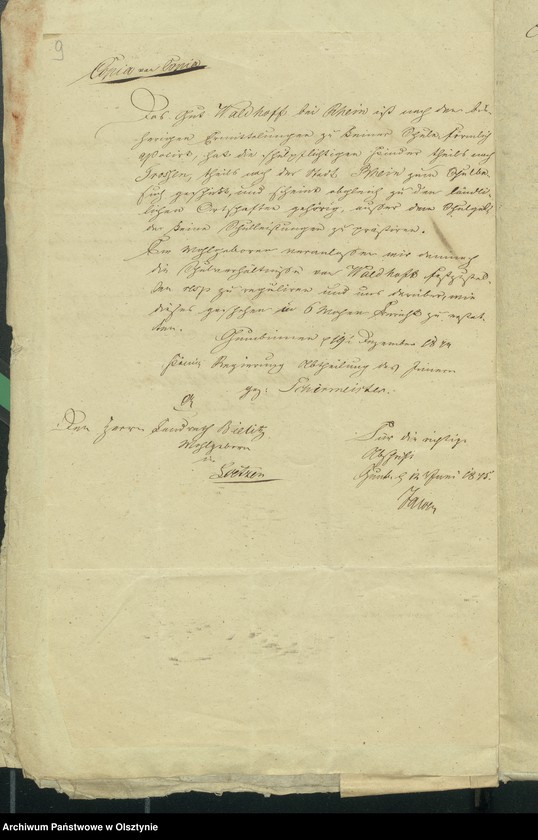 9
Copia von Copia
Das Gut Waldhoff bei Rhein ist nach den bis-
herigen Ermittelungen zu keiner Schule förmlich
, hat die schulpflichtigen Kinder theils nach
, theils nach der Stadt Rhein zum Schulbe-
such geschickt, und scheint obgleich zu den ländli-
lichen Ortschaften gehörig, außer dem Schulgel-
de keine Schulleistungen zu prästiren.
Ew Wohlgeboren veranlassen wir demnach
die Schulverhältnisse von Waldhoff festzustel-
len resp zu reguliren und uns darüber, wie
dieses geschehen in 6 Wochen Bericht zu erstat-
ten.
Gumbinnen d 19t Dezember 18
Königl Regierung Abtheilung des Innern
gez: Schirmeister.
An
Den Herrn Landrath Bielitz
Wohlgeboren
in
Loetzen
Für die richtige
Abschrift
Gumb. d 12 Juni 1875.